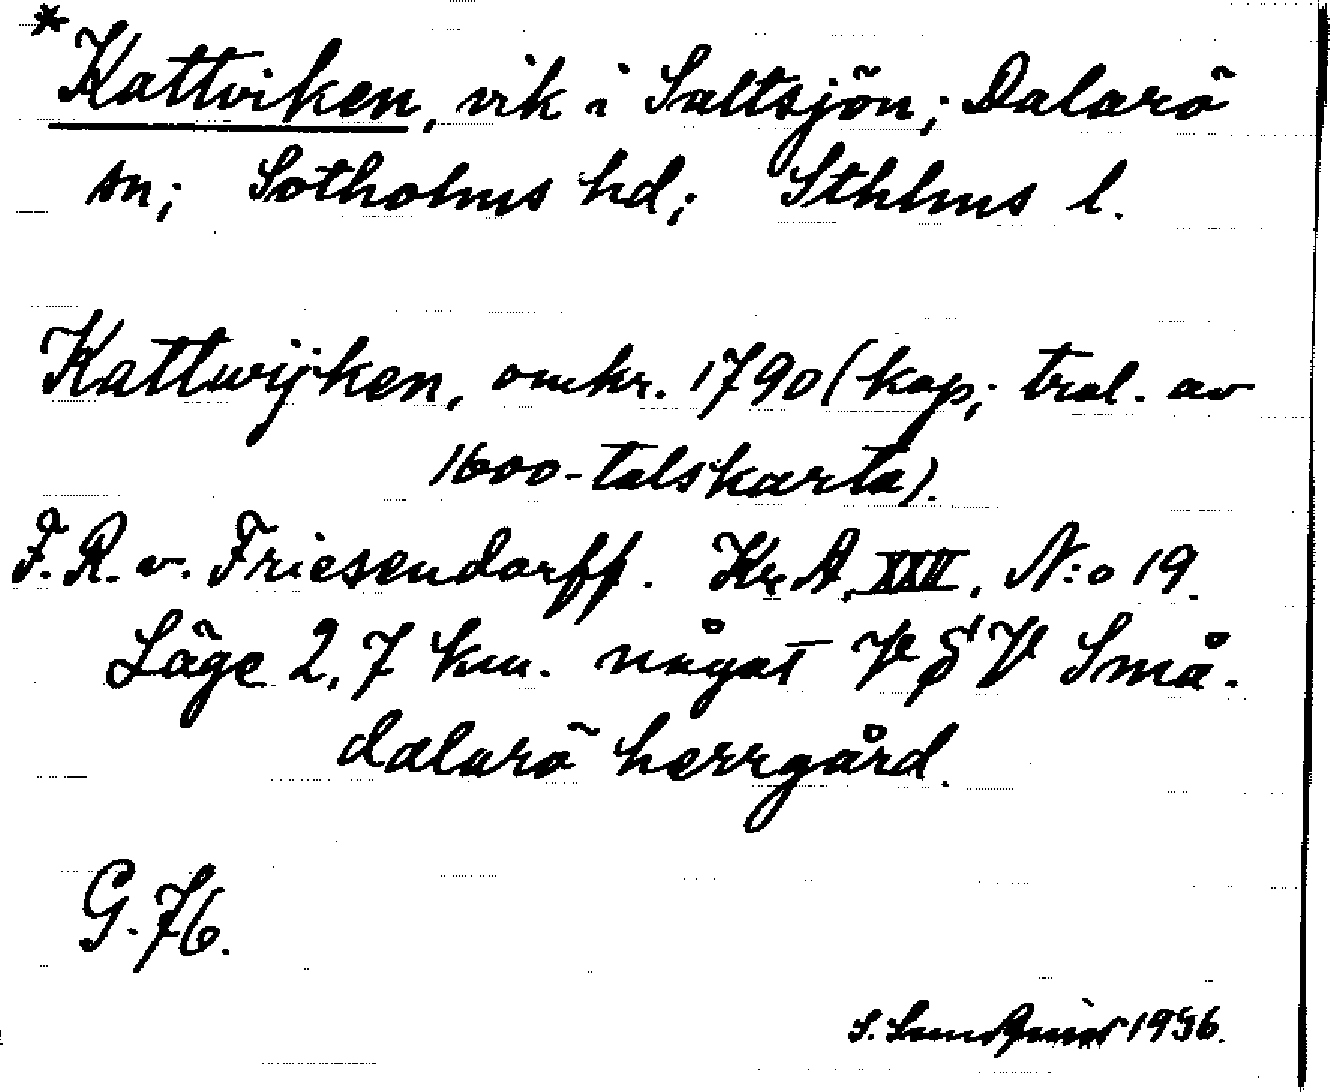 *Kattviken, vik i Saltsjön; Dalarö
sn; Sotholms hd; Sthlms l.
Kattwijken, omkr. 1790 (kop; trol. av
1600-talskarta).
F. R. v. Friesendorff. Kr. A. XXII. N:o 19.
Läge 2,7 km. något V S V Små-
dalarö herrgård.
G. 76.
S. 1936.